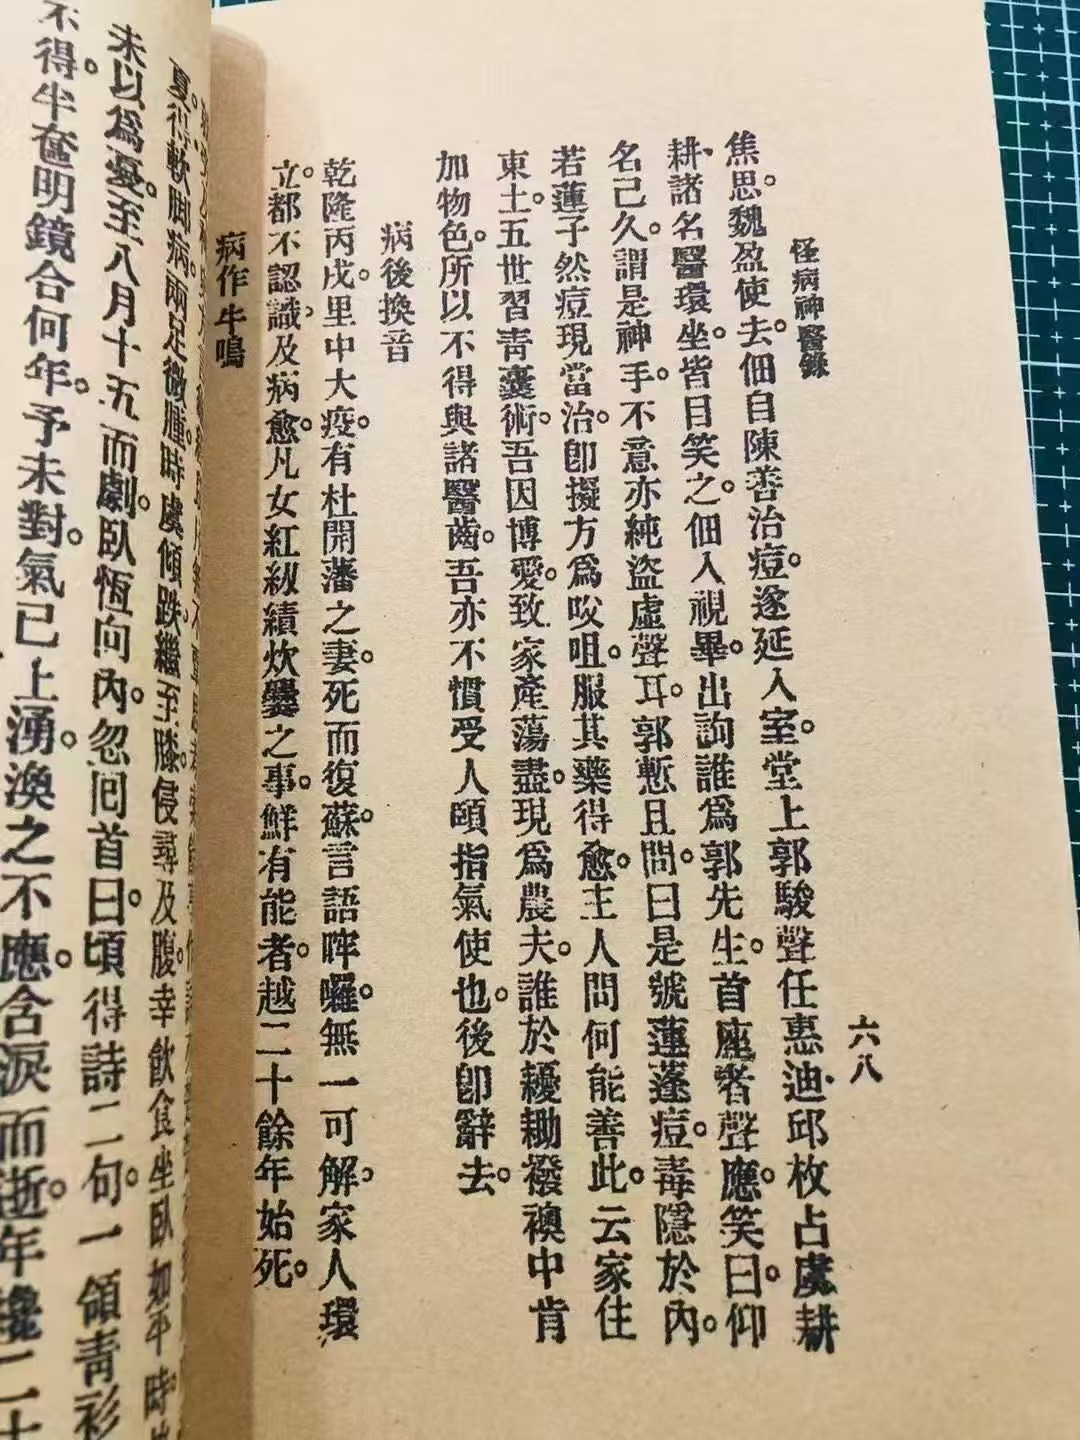 怪病神醫錄
六八
焦思。魏盈使去。佃自陳善治痘。遂延入室。堂上郭駿聲任惠迪邱枚占虞耕
耕、諸名醫環坐。皆目笑之。佃入視畢。出詢誰爲郭先生。首座者聲應。笑曰。仰
名己久。謂是神手。不意亦純盜虛聲耳。郭慙且問。曰是號蓮蓬痘。毒隱於內。
若蓮子然痘現當治。卽擬方爲㕮咀。服其藥得愈。主人問何能善此。云家住
東土。五世習靑囊術。吾因博愛。致家產蕩盡。現爲農夫。誰於耰耡襏襫中肯
加物色。所以不得與諸醫齒。吾亦不慣受人頤指氣使也。後卽辭去。
病後換音
乾隆丙戌。里中大疫。有杜開藩之妻。死而復蘇。言語哶囉。無一可解。家人環
立。都不認識。及病愈。凡女紅紉績炊爨之事。鮮有能者。越二十餘年始死。
病作牛鳴
夏。得軟脚病。兩足微腫。時虞傾跌。繼至膝。侵尋及腹。幸飲食坐臥如平時。
未以爲憂。至八月十五而劇。臥恆向內。忽囘首。曰。頃得詩二句。一領靑衫
不得。半奩明鏡合何年。予未對。氣已上湧。渙之不應。含淚而逝。年纔二十